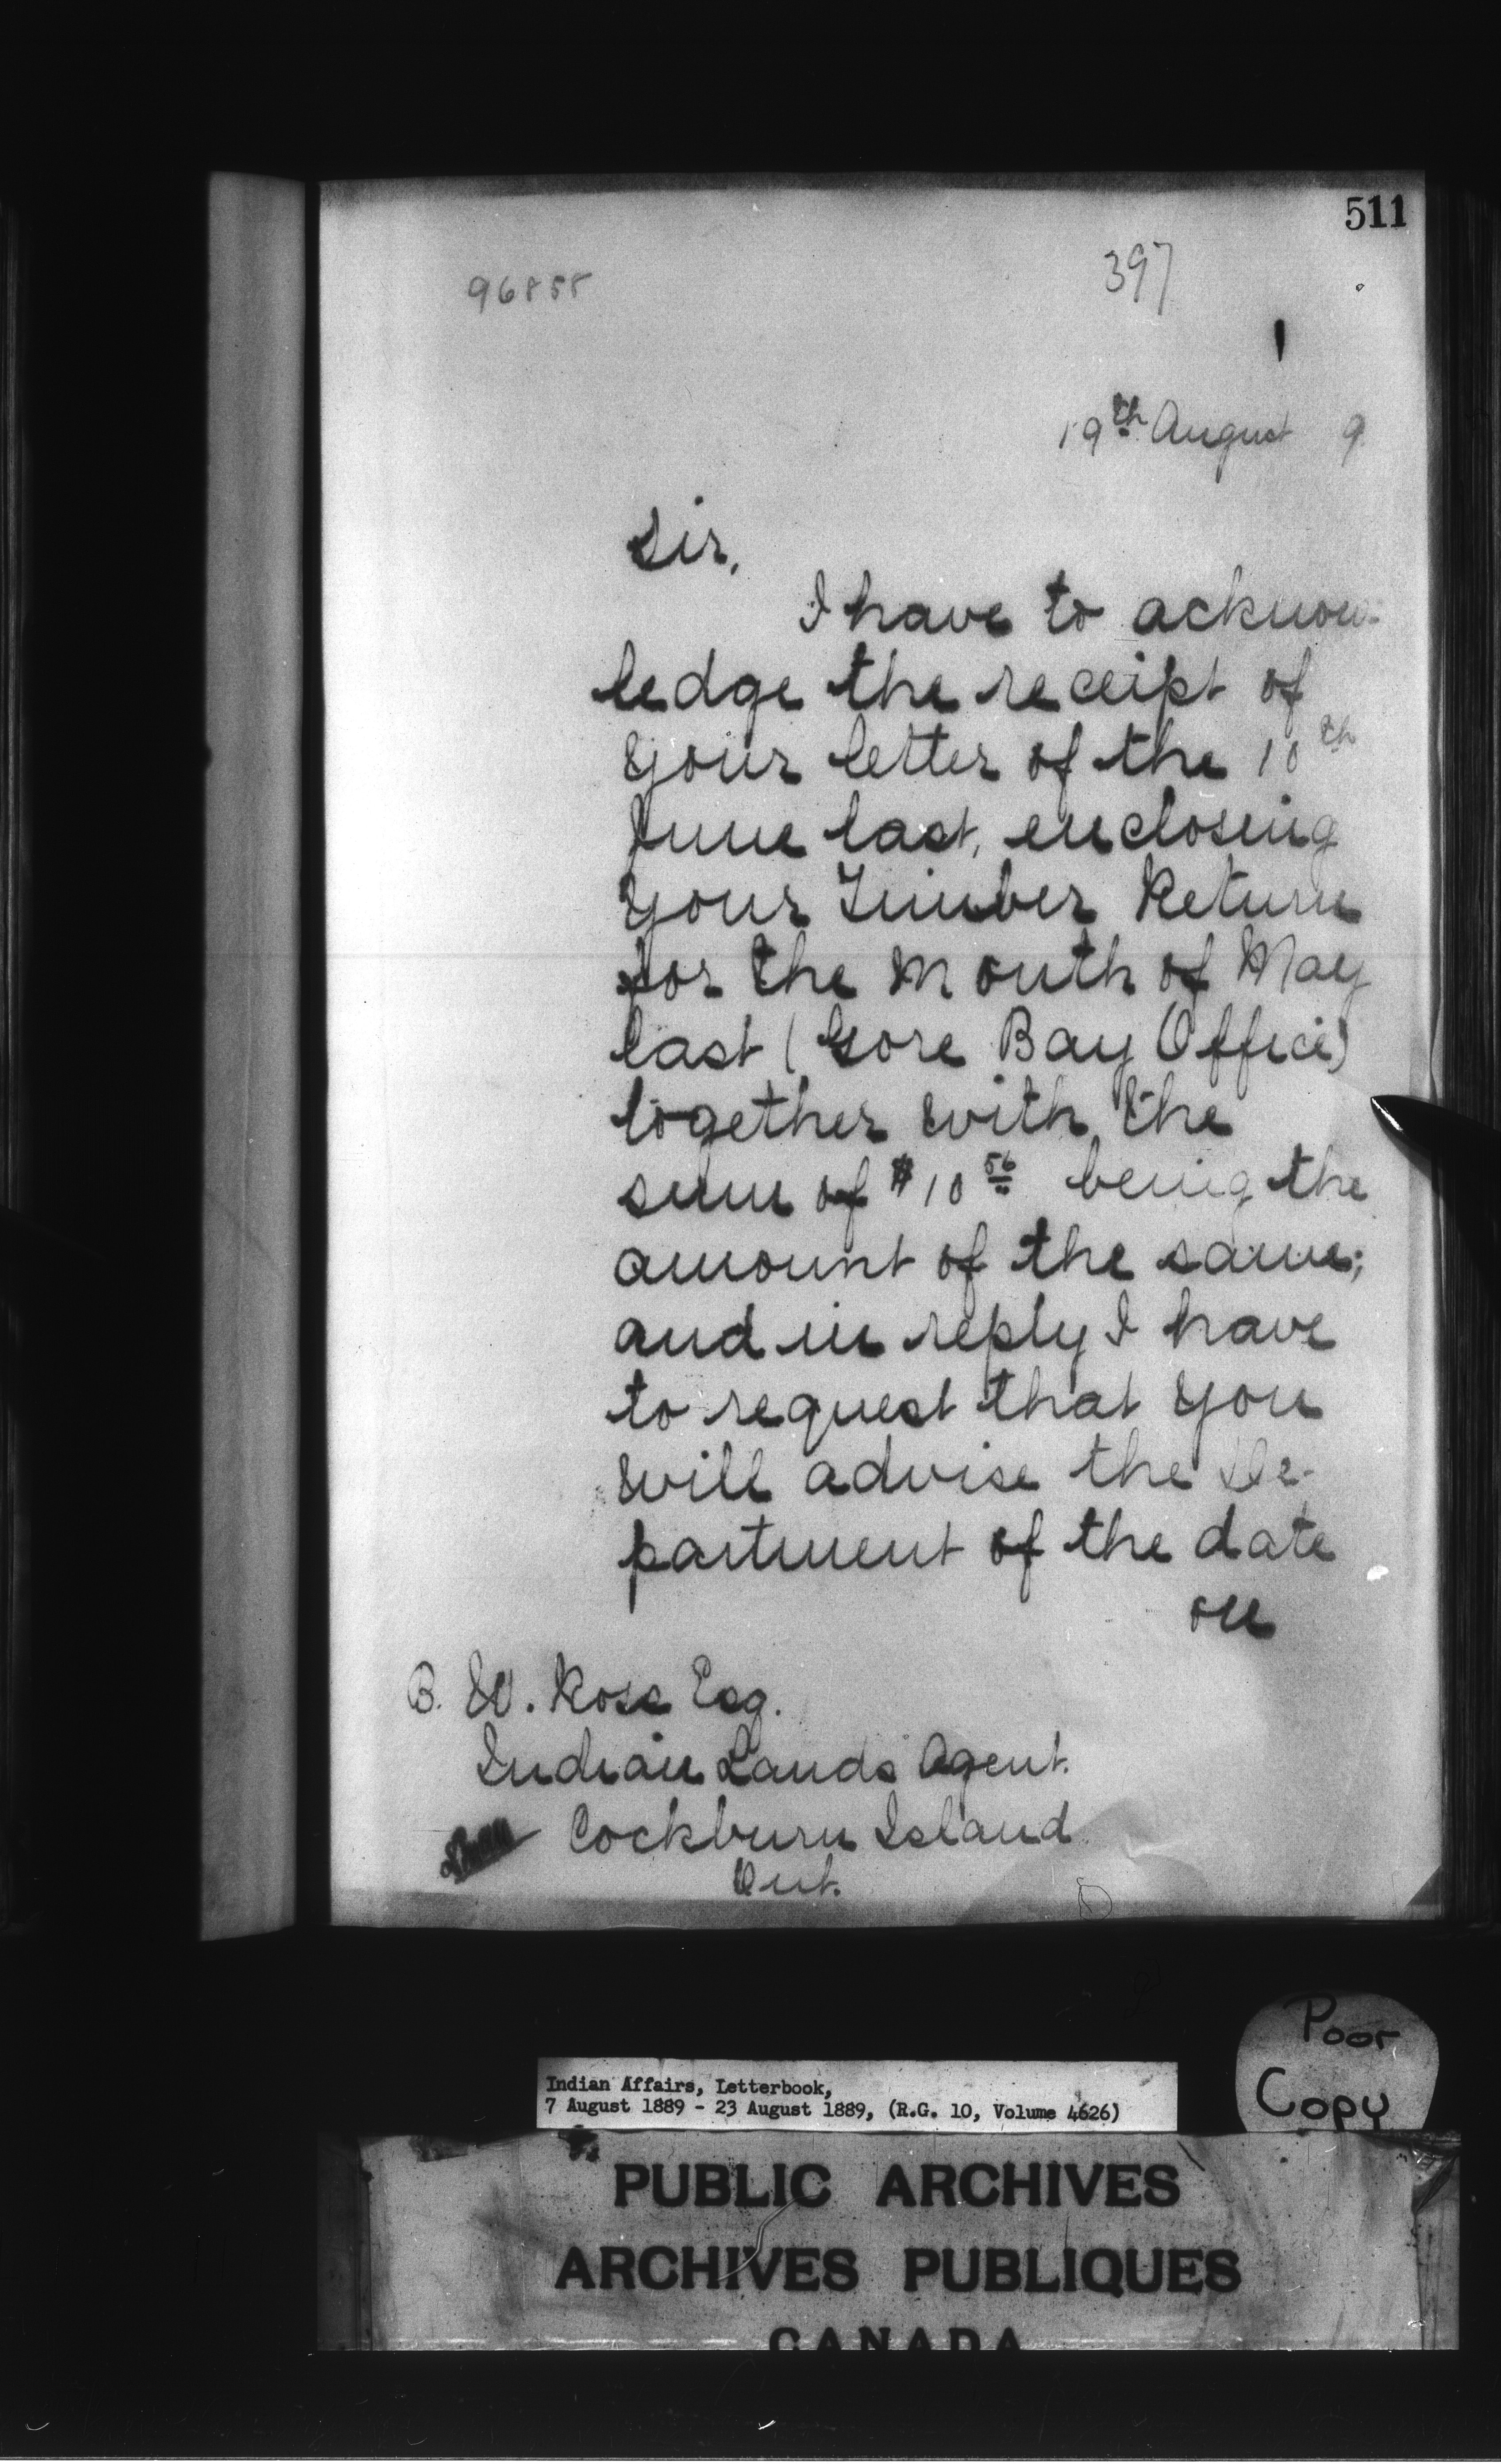 511
397
96858
19th August 9
Sir,
I have to acknow-
ledge the receipt of
your letter of the 10th
June last, enclosing
your Timber Return
for the month of May
last (Gore Bay Office)
together with the
sum of $10 56 being the
amount of the same;
and in reply I have
to request that you
will advise the De-
partment of the date
on
B. W. Ross Esq.
Indian Lands Agent.
Cockburn Island
Ont.
Poor
Copy
Indian Affairs, Letterbook,
7 August 1889 - 23 August 1889, (R.G. 10, Volume 4626)
PUBLIC ARCHIVES
ARCHIVES PUBLIQUES
CANADA